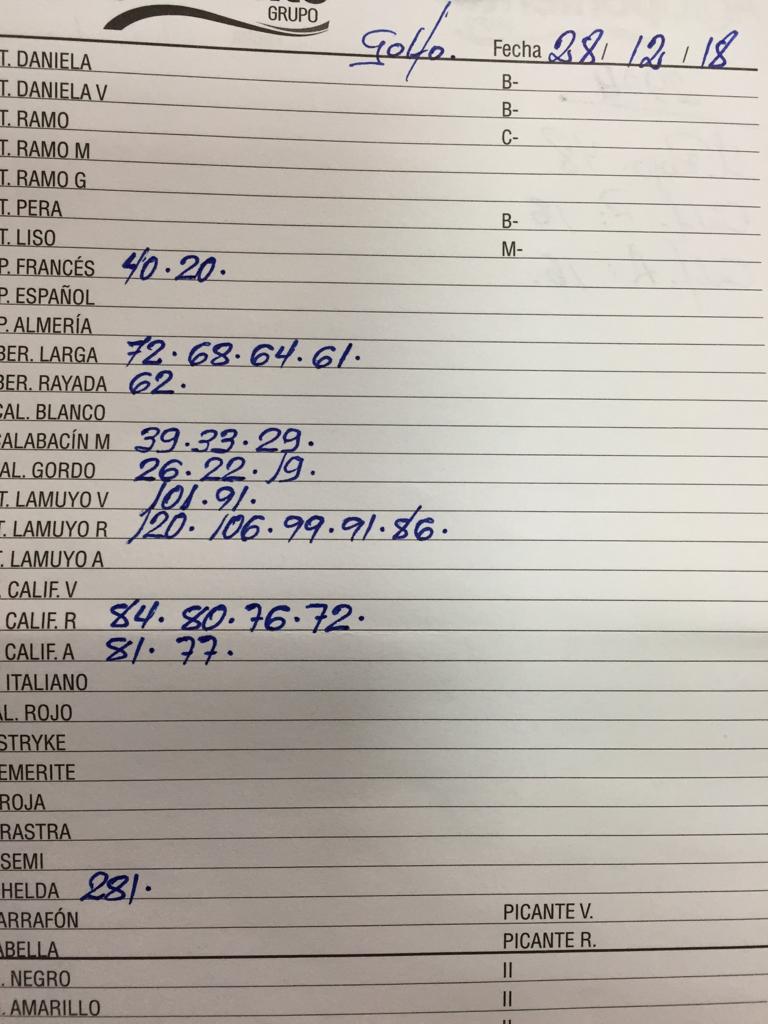 GRUPO
Golfo. Fecha 28/ 12 / 18
T. DANIELA B-
T. DANIELA V B-
T. RAMO C-
T. RAMO M
T. RAMO G
T. PERA B-
T. LISO M-
P. FRANCÉS 40. 20.
P. ESPAÑOL
P. ALMERÍA
BER. LARGA 72. 68. 64. 61.
BER. RAYADA 62.
CAL. BLANCO
ALABACÍN M 39. 33. 29.
AL. GORDO 26. 22. 19.
T. LAMUYO V 101. 91.
T. LAMUYO R 120. 106. 99. 91. 86.
T. LAMUYO A
. CALIF. V
CALIF. R 84. 80. 76. 72.
CALIF. A 81. 77.
ITALIANO
AL. ROJO
STRYKE
EMERITE
ROJA
RASTRA
SEMI
HELDA 281.
ARRAFÓN PICANTE V.
ABELLA PICANTE R.
. NEGRO II
. AMARILLO II